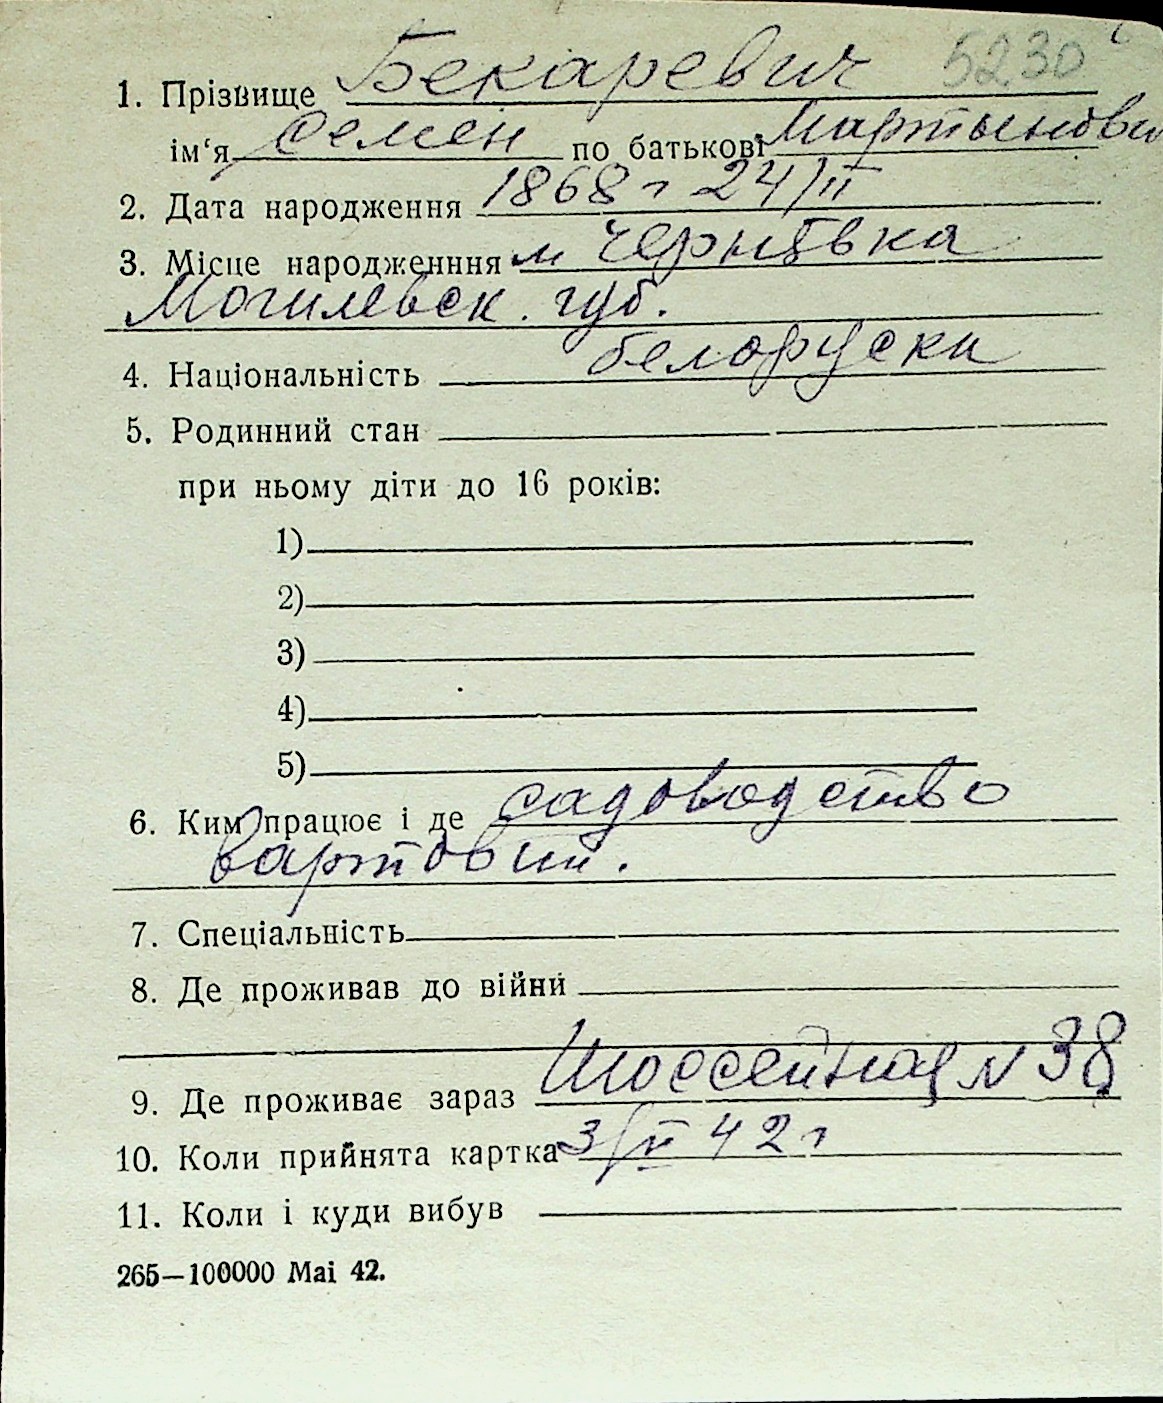 5230
1. Прізвище Бекаревич
ім'я Семен по батькові Мартынович
2. Дата народження 1868 г 24/II
3. Місце народженння м Чернявка
Могилевск. губ.
4. Національність белоруски
5. Родинний стан
при ньому діти до 16 років:
1)
2)
3)
4)
5)
6. Ким працює і де садоводство
вартовий.
7. Спеціальність
8. Де проживав до війни
9. Де проживає зараз Шоссейная N 38
10. Коли прийнята картка 42 г
11. Коли і куди вибув
265—100000 Mai 42.